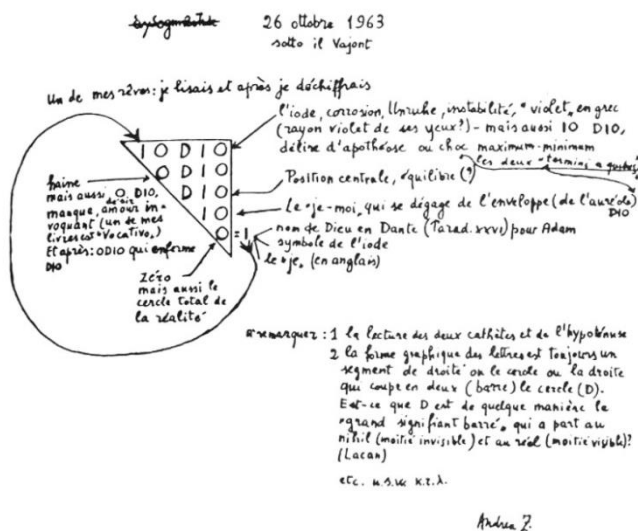 26 ottobre 1963
sotto il Vajont
Un de mes rêves: je lisais et après je déchiffrais
I O D I O
O D I O
D I O
I O
O = I
l'iode, corrosion, Unruhe, instabilité, "violet" en grec
(rayon violet de ses yeux?) - mais aussi IO DIO,
délire d'apothéose ou choc maximum-minimum
les deux
Position centrale, équilibre (?)
Le "je-moi" qui se dégage de l'enveloppe (de l'auréole)
DIO
nom de Dieu en Dante (Parad. XXVI) pour Adam
symbole de l'iode
le "je" (en anglais)
haine
mais aussi O DIO,
manque, amour in-
voquant (un de mes
livres est "Vocativo")
Et après: ODIO qui enferme
DIO
zéro
mais aussi le
cercle total de
la réalité
Remarquer: 1 la lecture des deux cathètes et de l'hypoténuse
2 la forme graphique des lettres est toujours un
segment de droite ou le cercle ou la droite
qui coupe en deux (barre) le cercle (D).
Est-ce que D est de quelque manière le
"grand signifiant barré" qui a part au
nihil (moitié invisible) et au réel (moitié visible)?
(Lacan)
etc. u.s.w. κ.τ.λ.
Andrea Z.